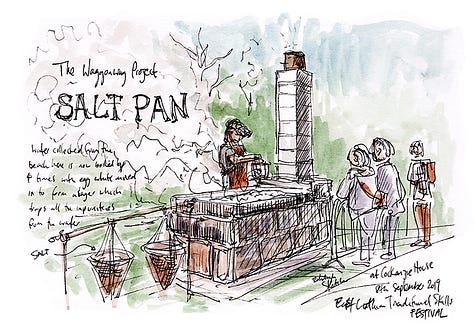 The Waggonway Project
SALT PAN
Water collected from the
beach here is now boiled up
4 times with egg white mixed
in to form a layer which
traps all the impurities
from the water
SALT
at Cockenzie House
8th September 2019
East Lothian Traditional Skills
FESTIVAL